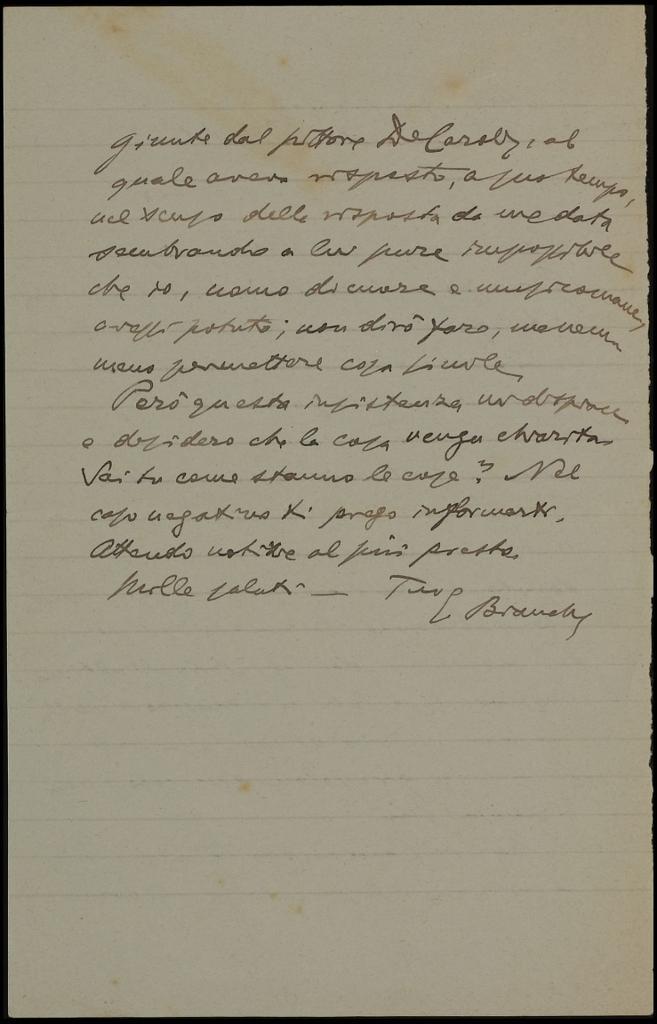 giunte dal pittore De Carolis, al
quale avevo risposto, a suo tempo,
nel senso della risposta da me data
sembrando a lui pure impossibile
che io, uomo di cuore e musicomane,
avessi potuto; non dirò fare, ma nem
meno permettere cosa simile.
Però questa insistenza mi dispiace
e desidero che la cosa venga chiarita
Sai tu come stanno le cose? Nel
caso negativo ti prego informarti.
Attendo notizie al più presto.
Mille saluti — Tuo
Bianchi